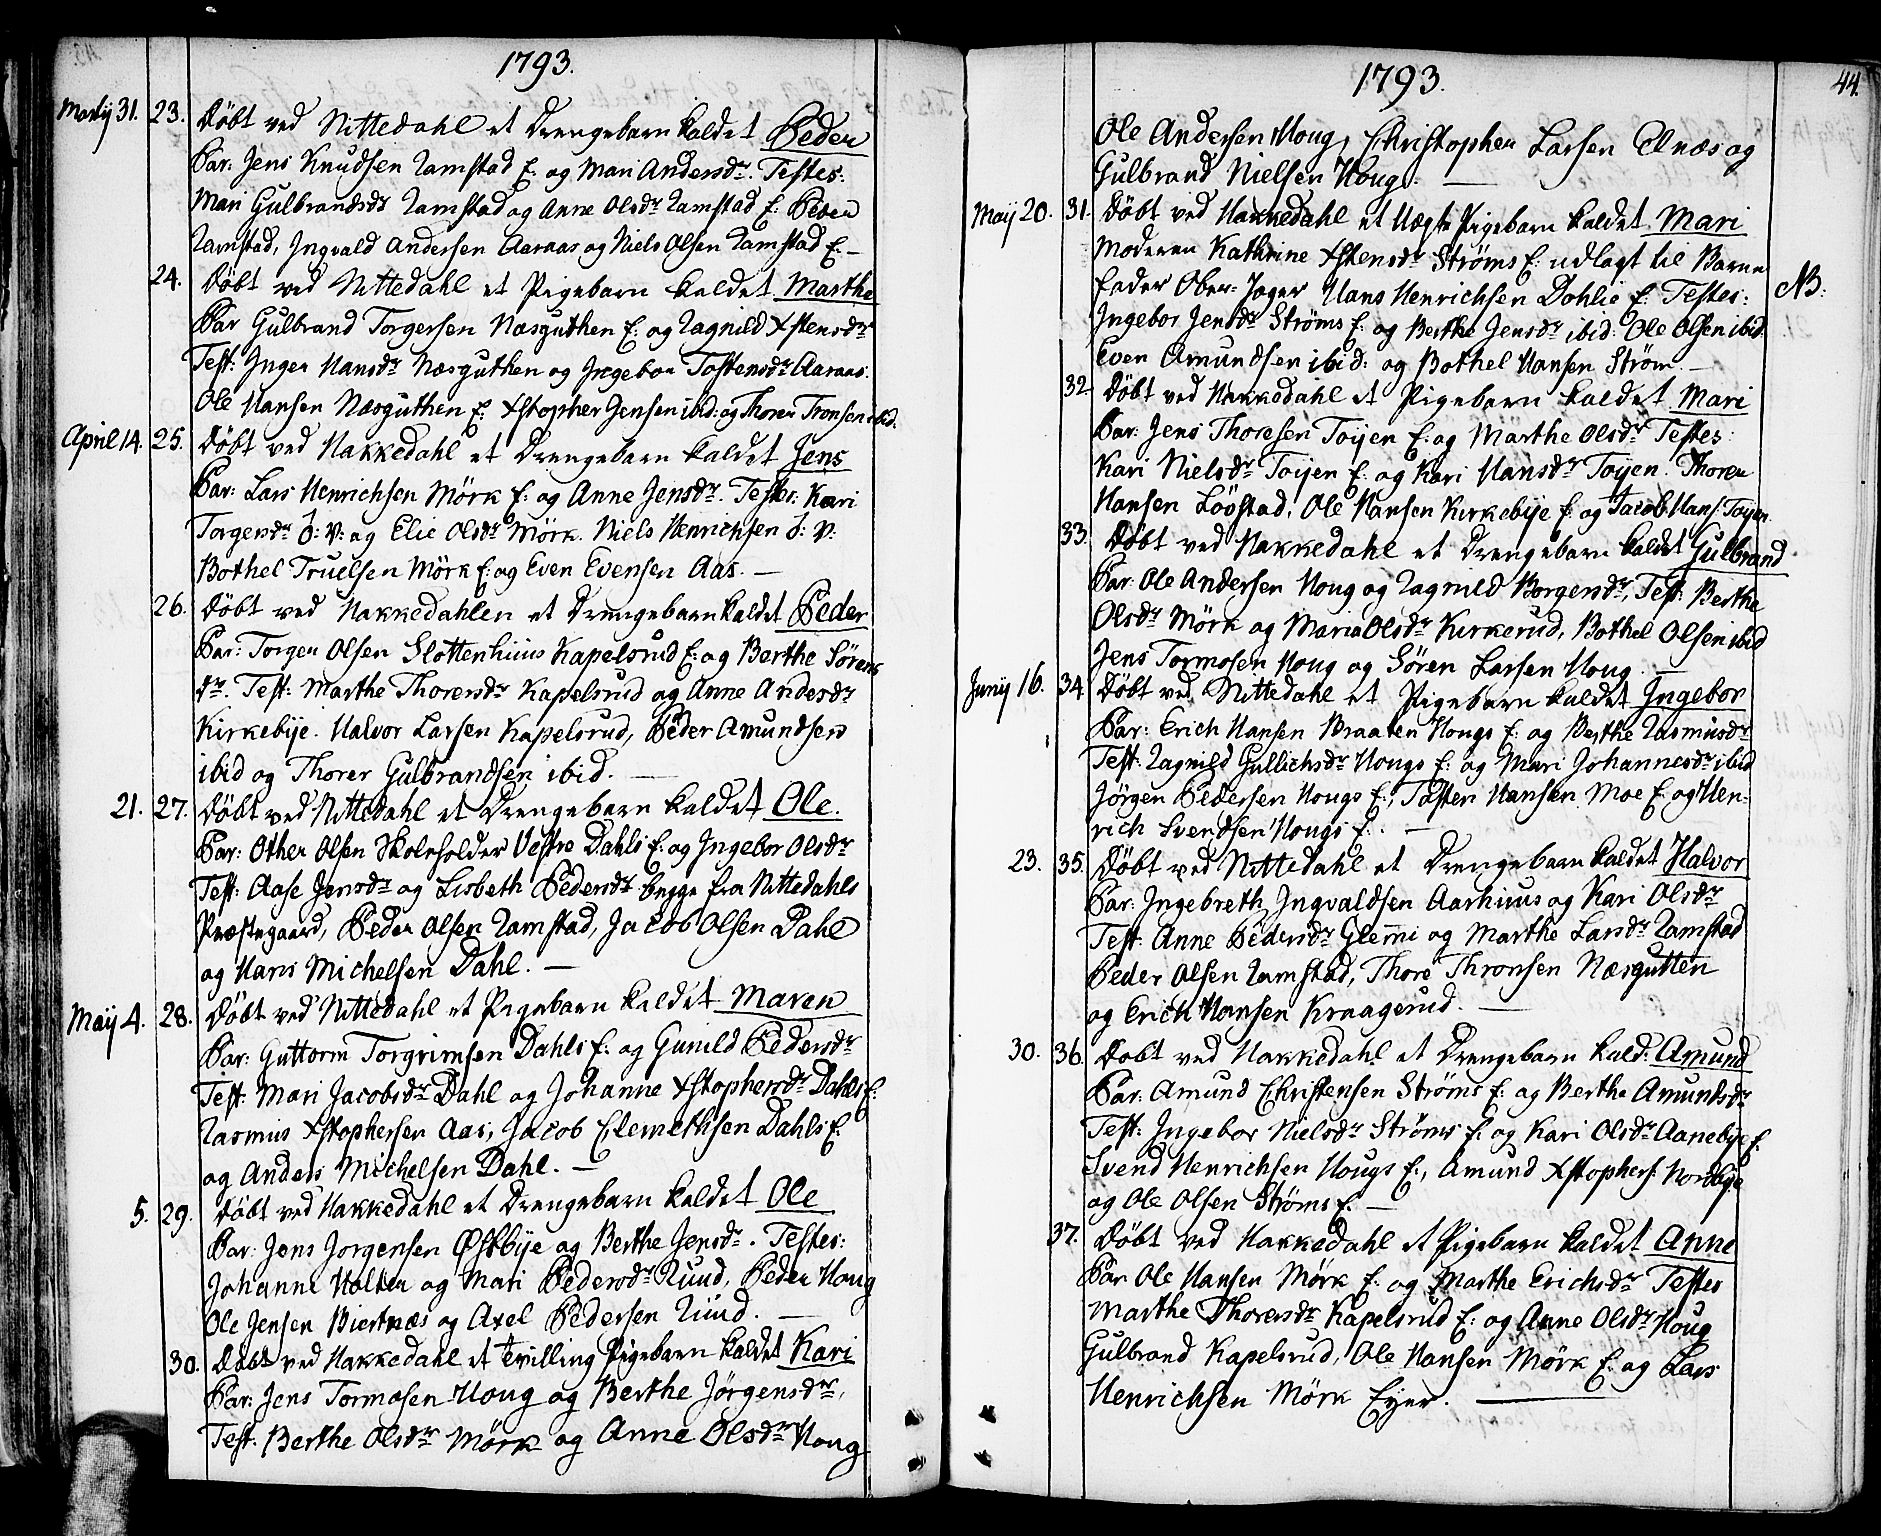 1793.
Martij 31. 23. Döbt ved Nittedahl et Drengebarn kaldet Peder
Par: Jens Knudsen Ramstad E: og Mari Andersdr. Testes:
Mari Gulbrandsdr Ramstad og Anne Olsdr Ramstad E: Peder
Ramstad, Ingvald Andersen Aaraas og Niels Olsen Ramstad E: —
24. Döbt ved Nittedahl et Pigebarn kaldet Marthe
Par Gulbrand Torgersen Næsguthen E: og Ragnild Xstensdr
Test: Inger Hansdr Næsguthen og Ingebor Tostensdr Aaraas.
Ole Hansen Næsguthen E: Xstopher Jensen ibid: og Thorer Tronsen ibid.
April 14. 25. Döbt ved Hakkedahl et Drengebarn kaldet Jens
Par: Lars Henrichsen Mörk E: og Anne Jensdr. Testes: Kari
Torgersdr ö: V: og Elie Olsdr Mörk. Niels Henrichsen ö: V:
Bothel Truelsen Mörk E: og Even Evensen Aas. —
26. Döbt ved Hakkedahlen et Drengebarn kaldet Peder
Par: Torger Olsen Slottenhuus Kapelsrud E: og Berthe Sörens
dr. Test: Marthe Thorersdr Kapelsrud og Anne Andersdr
Kirkebije. Halvor Larsen Kapelsrud, Peder Amundsen
ibid og Thorer Gulbrandsen ibid. —
21. 27. Döbt ved Nittedahl et Drengebarn kaldet Ole.
Par: Other Olsen Skoleholder Vestre Dahls E: og Ingebor Olsdr
Test: Aase Jensdr og Lisbeth Pedersdr begge fra Nittedahls
Præstegaard, Peder Olsen Ramstad, Jacob Olsen Dahl
og Hans Michelsen Dahl. —
Maij 4. 28. Döbt ved Nittedahl et Pigebarn kaldet Maren
Par: Guttorm Torgrimsen Dahls E: og Gunild Pedersdr
Test: Mari Jacobsdr Dahl og Johanne Xstophersdr Dahls E:
Rasmus Xstophersen Aas, Jacob Clemethsen Dahls E:
og Anders Michelsen Dahl. —
5. 29. Döbt ved Hakkedahl et Drengebarn kaldet Ole
Par: Jens Jorgensen Østbije og Berthe Jensdr. Testes:
Johanne Holter og Mari Pedersdr Ruud, Peder Houg
Ole Jensen Biertnæs og Axel Pedersen Ruud. —
30. Döbt ved Hakkedahl et Tvilling Pigebarn kaldet Kari
Par: Jens Tormosen Houg og Berthe Jörgensdr,
Test: Berthe Olsdr Mörk og Anne Olsdr Houg
1793.
44.
Ole Andersen Houg, Christopher Larsen Elnæs og
Gulbrand Nielsen Houg. —
Maij 20. 31. Döbt ved Hakkedahl et Uægte Pigebarn kaldet Mari
Moderen Kathrine Xstensdr Ströms E: udlagt til Barne
fader Ober-Jager Hans Henrichsen Dohlie E: Testes: NB:
Ingebor Jensdr Ströms E: og Berthe Jensdr ibid: Ole Olsen ibid.
Even Amundsen ibid: og Bothel Hansen Ström. —
32 Döbt ved Hakkedahl et Pigebarn kaldet Mari
Par: Jens Thoresen Toijen E: og Marthe Olsdr Testes:
Kari Nielsdr Toijen E: og Kari Hansdr Toijen. Thorer
Hansen Lövstad, Ole Hansen Kirkebije E: og Jacob Hans: Toijen
33. Döbt ved Hakkedahl et Drengebarn kaldet Gulbrand
Par: Ole Andersen Houg og Ragnild Borgersdr, Test: Berthe
Olsdr Mörk og Maria Olsdr Kirkerud, Bothel Olsen ibid
Jens Tormosen Houg og Sören Larsen Houg. —
Junij 16. 34. Döbt ved Nittedahl et Pigebarn kaldet Ingebor
Par: Erich Hansen Braaten Hougs E: og Berthe Rasmusdr
Test: Ragnild Gullichsdr Hougs E: og Mari Johannesdr ibid
Jörgen Pedersen Hougs E:, Tosten Hansen Moe E: og Hen-
rich Svendsen Hougs E: —
23. 35. Döbt ved Nittedahl et Drengebarn kaldet Halvor
Par: Ingebreth Ingvaldsen Aarhuus og Kari Olsdr
Test: Anne Pedersdr Glemmi og Marthe Larsdr Ramstad
Peder Olsen Ramstad, Thore Thronsen Næsgutten
og Erich Hansen Kraagerud. —
30. 36. Döbt ved Hakkedahl et Drengebarn kald: Amund
Par: Amund Christensen Ströms E: og Berthe Amundsdr
Test: Ingebor Nielsdr Ströms E: og Kari Olsdr Aanebije E:
Svend Henrichsen Hougs E:, Amund Xstophers: Nordbije
og Ole Olsen Ströms E: —
37. Döbt ved Hakkedahl et Pigebarn kaldet Anne
Par Ole Hansen Mörk E: og Marthe Erichsdr Testes
Marthe Thorersdr Kapelsrud E: og Anne Olsdr Houg
Gulbrand Kapelsrud, Ole Hansen Mörk E: og Lars
Henrichsen Mörk Eyer. —